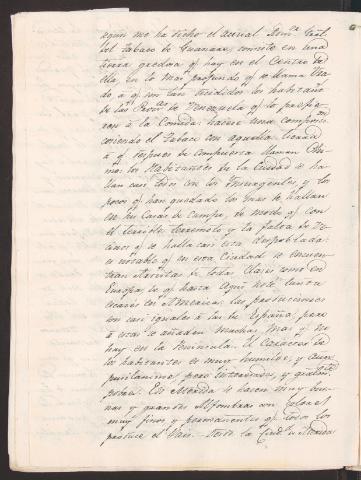 segun me ha dicho el actual Adm.or Gral
del tabaco de Guanare, consiste en una
tierra gredosa q.e hay en el Centro de
ella, en lo mas profundo q.e se llama Urao
à q.e son tan decididos los habitan.s
de las Prov.as de Venezuela q.e lo prefie-
ren à la Comida: hacese una composic.on
cociendo el tabaco con aquella tierra
à q.e despues de compuesta llaman Chi-
mo: los Habitantes de la Ciudad se ha-
llan casi todos con los Insurgentes, y los
pocos q.e han quedado los mas se hallan
en sus Casas de Campo, de modo q.e con
el terrible terremoto y la falta de Ve-
cinos q.e se halla casi despoblada:
es notable q.e en esta Ciudad se encuen-
tran de todas Clases como en
Europa, lo q.e hasta aqui
en America; las producciones
son casi iguales à las de España, pero
à estas se añaden muchas mas q.e no
hay en la Peninsula. El Caracter de
los habitantes es muy humilde, y aun
pusilanime, pero
En Merida se hacen muy bue-
nas y grandes Alfombras con Colores
muy finos y permanentes q.e todos los
produce el Pais. Desde la Ciud.d de Merida